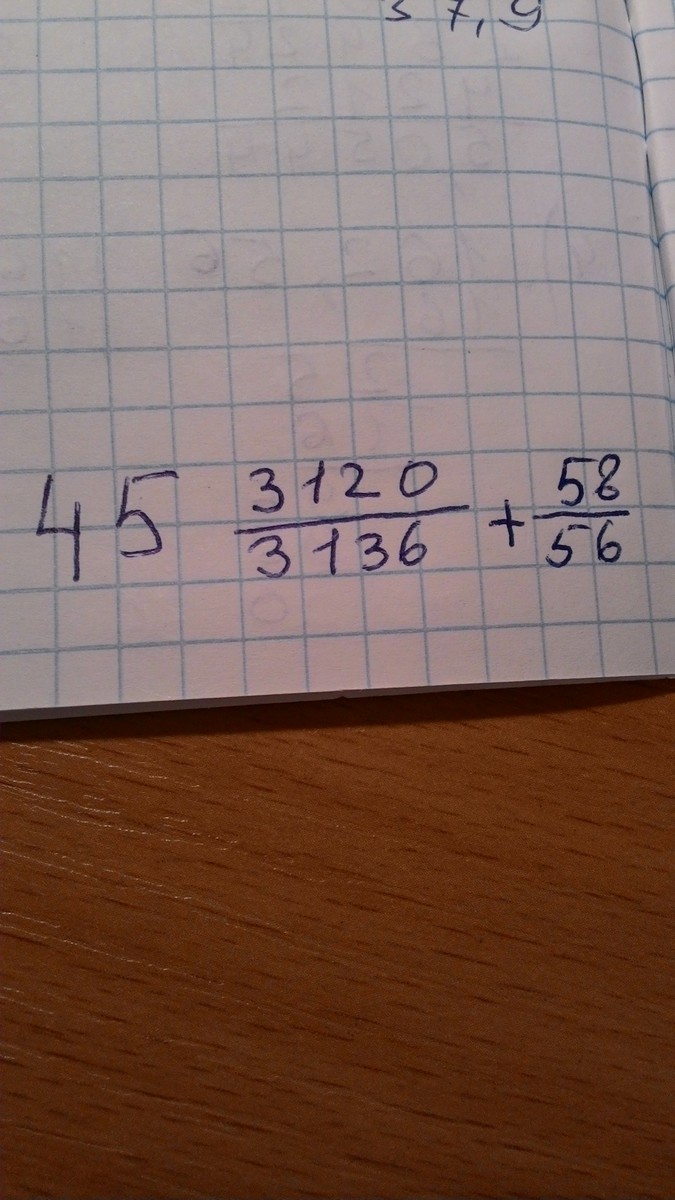 37,9
45 3120/3136 + 58/56